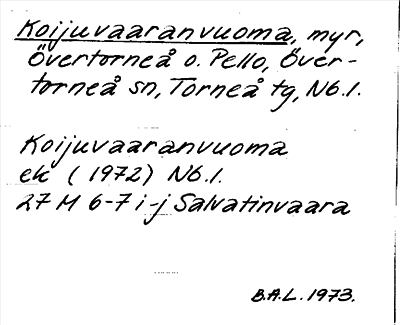 Koijuvaaranvuoma, myr,
Övertorneå o. Pello, Över-
torneå sn, Torneå tg, Nb.l.
Koijuvaaranvuoma
ek (1972) Nb.l.
27 M 6-7 i-j Salvatinvaara
B.A.L. 1973.